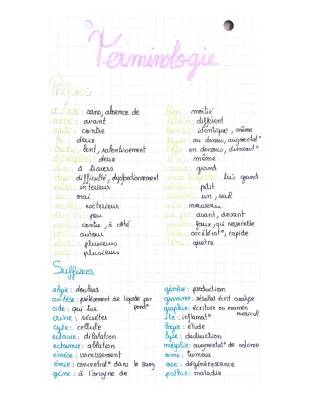 Terminologie
Préfixes
a / an : sans, absence de
anté : avant
anti : contre
bi : deux
brady : lent, ralentissement
deux
dia : à travers
dys : difficulté, dysfonctionnement
intérieur
extérieur
peu
contre, à côté
autour
poly : plusieurs
plusieurs
hémi : moitié
hétéro : différent
homo : identique, même
hyper : au dessus, augmentat°
hypo : en dessous, diminuat°
même
grand
très grand
petit
mono : un, seul
néo : nouveau
avant, devant
faux, qui ressemble
tachy : accélérat°, rapide
quatre
Suffixes
algie : douleur
centèse : prélèvement de liquide par ponct°
cide : qui tue
crine : sécréter
cyte : cellule
ectasie : dilatation
ectomie : ablation
émèse : vomissement
émie : concentrat° dans le sang
gène : à l'origine de
génèse : production
gramme : résultat écrit analyse
graphie : écriture ou examen
ite : inflamat°
logie : étude
lyse : destruction
mégalie : augmentat° de volume
ome : tumeur
ose : dégénérescence
pathie : maladie